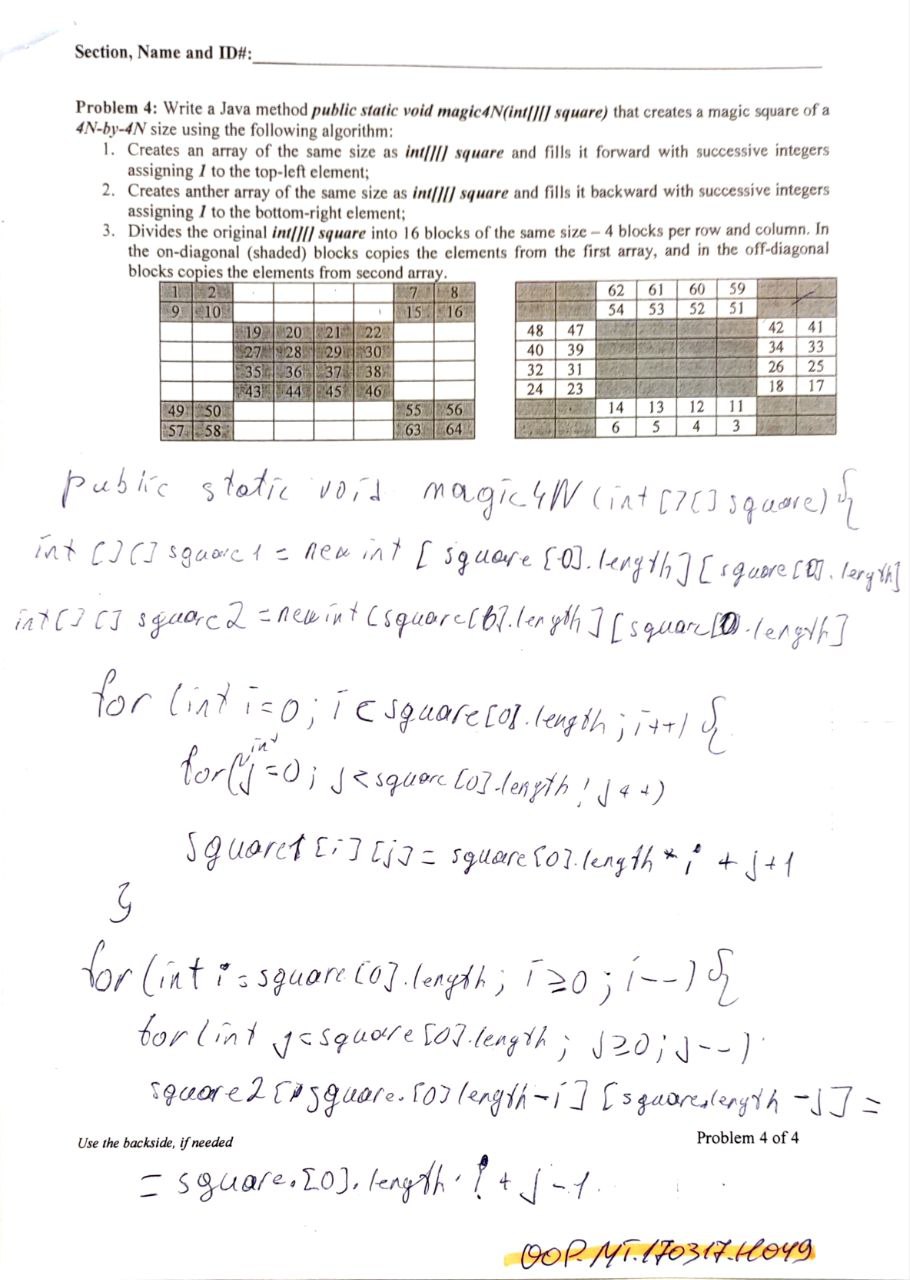 Section, Name and ID#:
Problem 4: Write a Java method public static void magic4N(int[][] square) that creates a magic square of a
4N-by-4N size using the following algorithm:
1. Creates an array of the same size as int[][] square and fills it forward with successive integers
assigning 1 to the top-left element;
2. Creates anther array of the same size as int[][] square and fills it backward with successive integers
assigning 1 to the bottom-right element;
3. Divides the original int[][] square into 16 blocks of the same size – 4 blocks per row and column. In
the on-diagonal (shaded) blocks copies the elements from the first array, and in the off-diagonal
blocks copies the elements from second array.
1 2 7 8 62 61 60 59
9 10 15 16 54 53 52 51
19 20 21 22 48 47 42 41
27 28 29 30 40 39 34 33
35 36 37 38 32 31 26 25
43 44 45 46 24 23 18 17
49 50 55 56 14 13 12 11
57 58 63 64 6 5 4 3
public static void magic4N (int [][] square) {
int [][] square1 = new int [square [0].length] [square [0].length]
int [][] square2 = new int [square[0].length] [square[0].length]
for (int i=0; i < square[0].length; i++) {
for (int j=0; j < square [0].length; j++)
square1 [i] [j] = square [0].length * i + j+1
}
for (int i = square [0].length; i ≥ 0; i--) {
for (int j = square [0].length; j ≥ 0; j--)
square2 [square.[0]length-i] [square.length -j] =
Use the backside, if needed
Problem 4 of 4
= square.[0].length · i + j-1.
OOP.MT.170317.H049